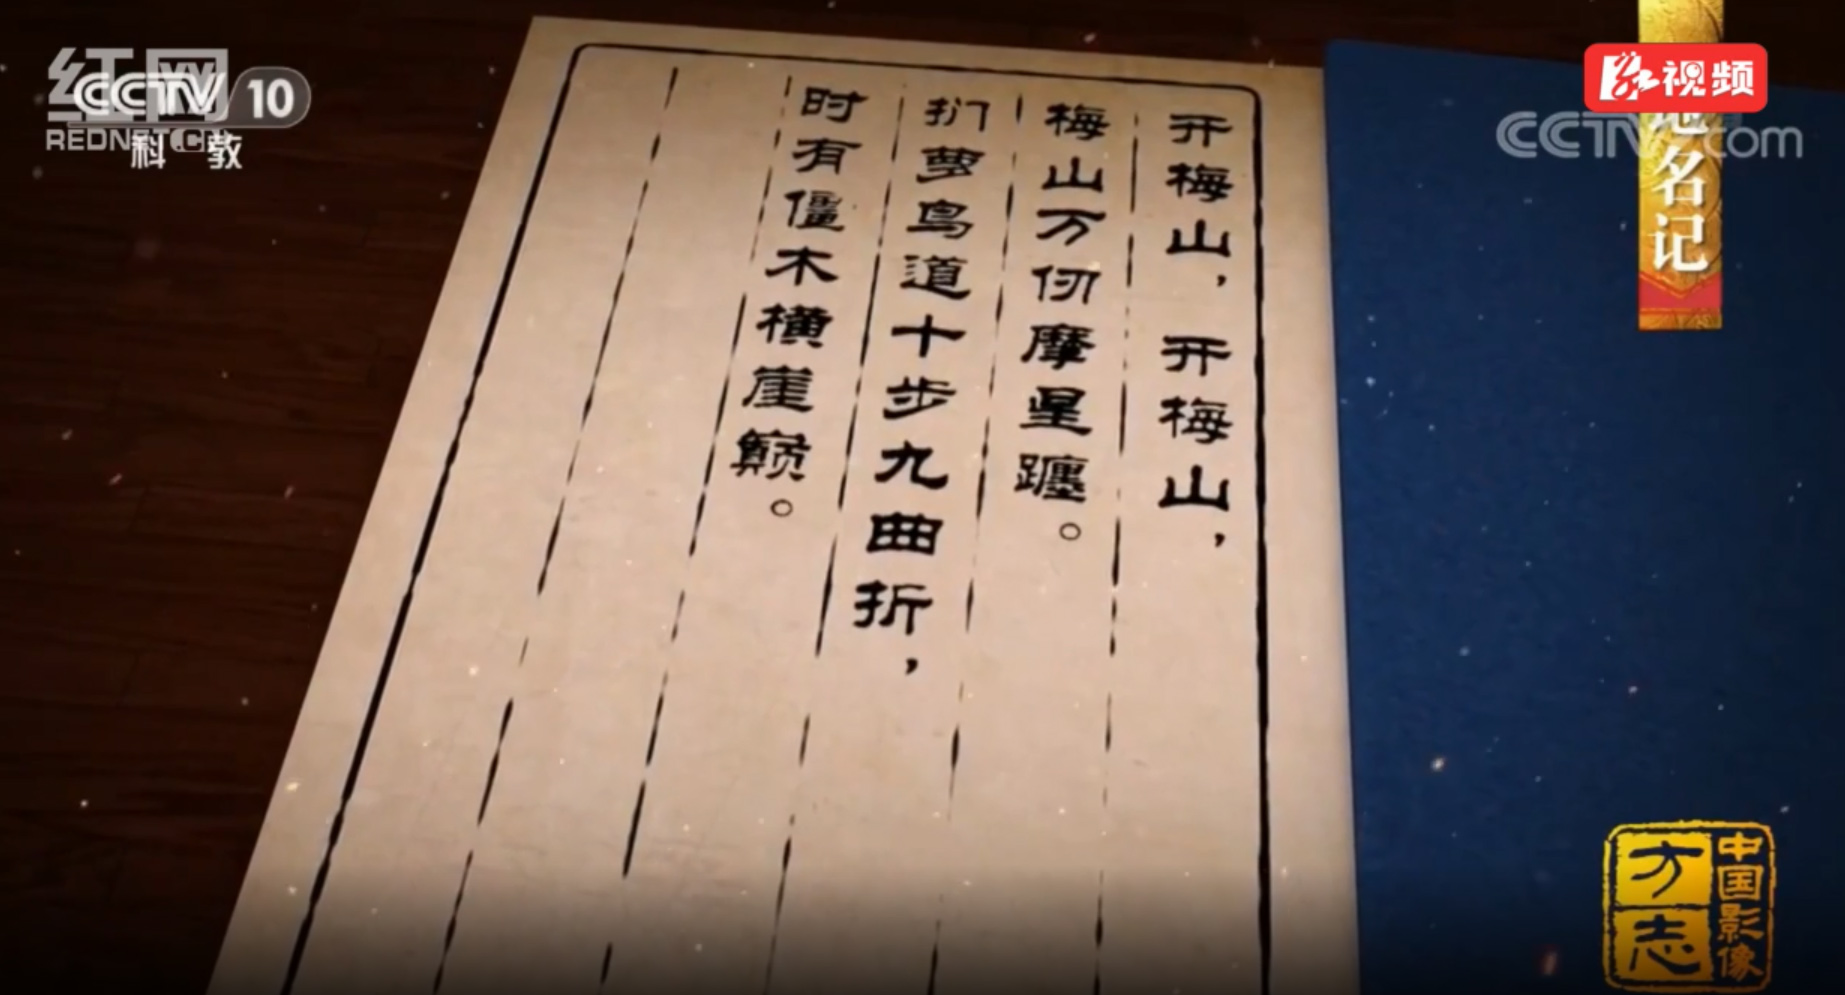 开梅山，开梅山，
梅山万仞摩星躔。
扪萝鸟道十步九曲折，
时有僵木横崖巅。
红网
REDNET.C
CCTV 10
科教
视频
CCTV.com
地名记
中国影像
方志